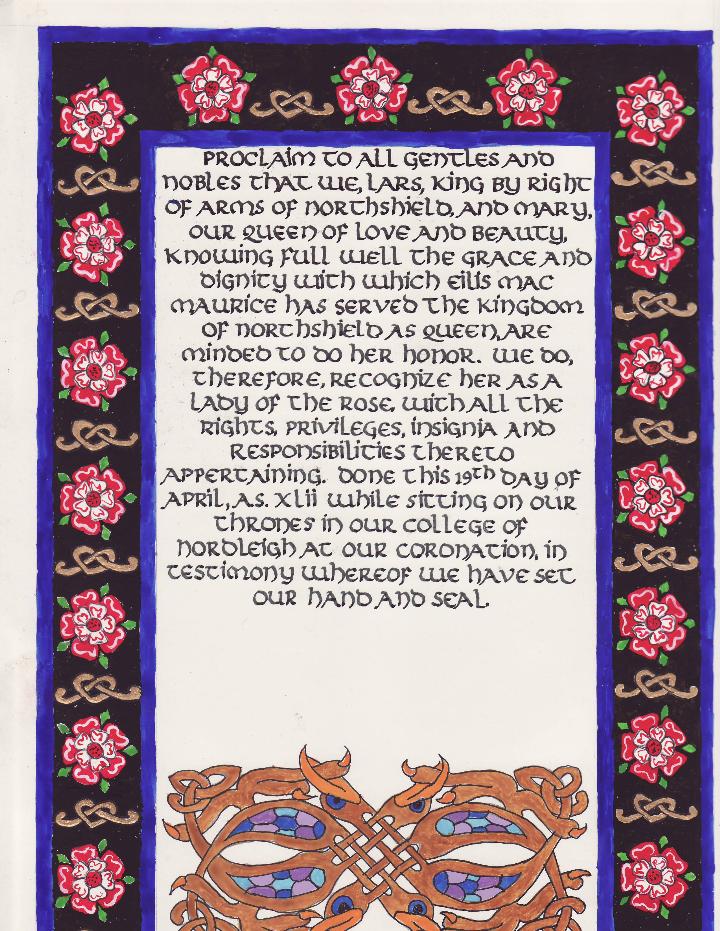 PROCLAIM TO ALL GENTLES AND
NOBLES THAT WE, LARS, KING BY RIGHT
OF ARMS OF NORTHSHIELD, AND MARY,
OUR QUEEN OF LOVE AND BEAUTY,
KNOWING FULL WELL THE GRACE AND
DIGNITY WITH WHICH EILIS MAC
MAURICE HAS SERVED THE KINGDOM
OF NORTHSHIELD AS QUEEN, ARE
MINDED TO DO HER HONOR. WE DO,
THEREFORE, RECOGNIZE HER AS A
LADY OF THE ROSE, WITH ALL THE
RIGHTS, PRIVILEGES, INSIGNIA AND
RESPONSIBILITIES THERETO
APPERTAINING. DONE THIS 19th DAY OF
APRIL, A.S. XLII WHILE SITTING ON OUR
THRONES IN OUR COLLEGE OF
NORDLEIGH AT OUR CORONATION, IN
TESTIMONY WHEREOF WE HAVE SET
OUR HAND AND SEAL.